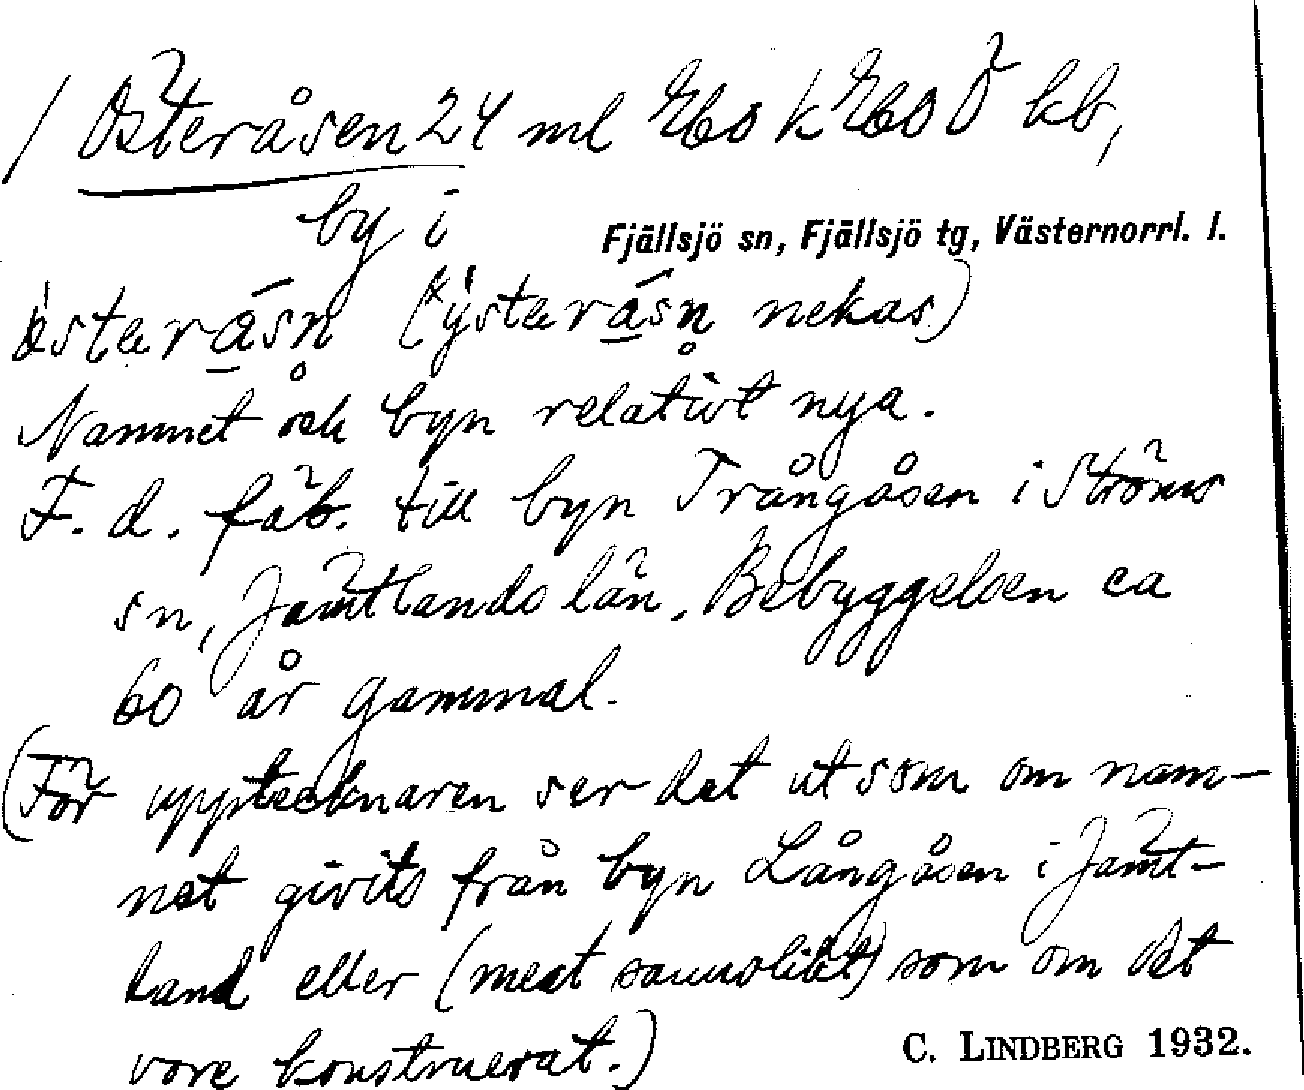 / Österåsen 24 ml Ebo k Ebo Ö kb,
by i Fjällsjö sn, Fjällsjö tg, Västernorrl. l.
östəråsn̥ (*ýstəråsn̥ nekas)
Namnet och byn relativt nya.
F. d. fäb. till byn Trångåsen i Ströms
sn, Jämtlands län. Bebyggelsen ca
60 år gammal.
(För upptecknaren ser det ut som om nam-
net givits från byn Långåsen i Jämt-
land eller (mest sannolikt) som om det
vore konstruerat.)
C. LINDBERG 1932.